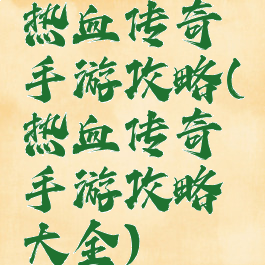 热血传奇
手游攻略(
热血传奇
手游攻略
大全)